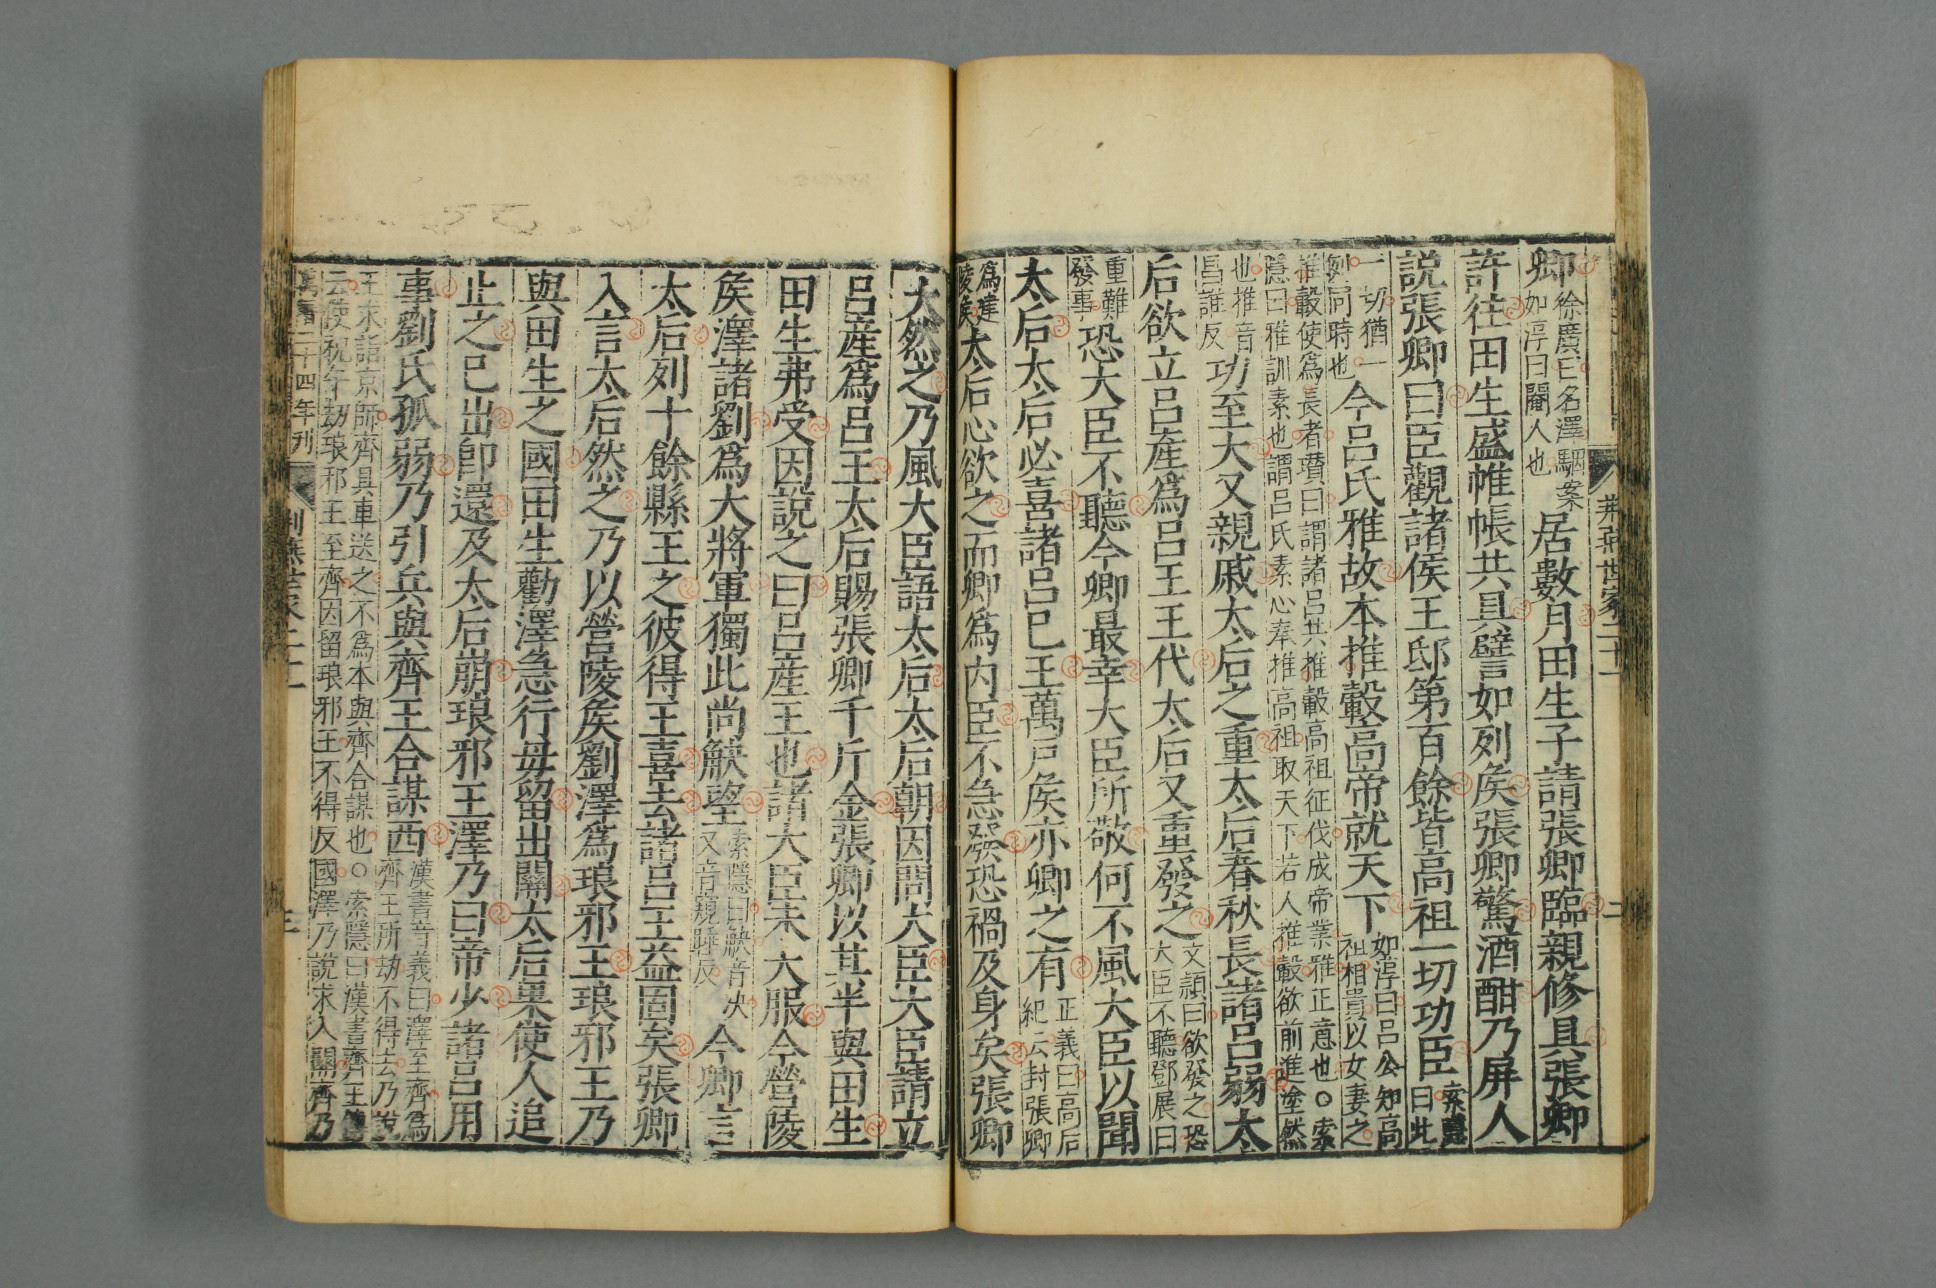 荊燕世家二十一 二
卿徐廣曰名澤駰案如淳曰閹人也居數月田生子請張卿臨親修具張卿
許往田生盛帷帳共具譬如列矦張卿驚酒酣乃屏人
説張卿曰臣觀諸侯王邸第百餘皆高祖一切功臣索隱曰此
一切猶一剸同時也今吕氏雅故本推轂高帝就天下如淳曰吕公知高祖相貴以女妻之
推轂使爲長者瓚曰謂諸吕共推轂高祖征伐成帝業雅正意也○索
隱曰雅訓素也謂吕氏素心奉推高祖取天下若人推轂欲前進塗然
也推音昌誰反功至大又親戚太后之重太后春秋長諸吕弱太
后欲立吕產爲吕王王代太后又重發之文頴曰欲發之恐大臣不聽鄧展曰
重難發事恐大臣不聽今卿最幸大臣所敬何不風大臣以聞
太后太后必喜諸吕已王萬戸矦亦卿之有正義曰高后紀云封張卿
爲建陵矦太后心欲之而卿爲内臣不急發恐禍及身矣張卿
大然之乃風大臣語太后太后朝因問大臣大臣請立
吕產爲吕王太后賜張卿千斤金張卿以其半與田生
田生弗受因説之曰吕產王也諸大臣未大服今營陵
矦澤諸劉爲大將軍獨此尚觖望索隱曰觖音决又音窺睡反今卿言
太后列十餘縣王之彼得王喜去諸吕王益固矣張卿
入言太后然之乃以營陵矦劉澤爲琅邪王琅邪王乃
與田生之國田生勸澤急行毋留出關太后果使人追
止之已出卽還及太后崩琅邪王澤乃曰帝少諸吕用
事劉氏孤弱乃引兵與齊王合謀西漢書音義曰澤至齊爲齊王所劫不得去乃説
王求詣京師齊具車送之不爲本與齊合謀也○索隱曰漢書齊王傳
云使祝午劫琅邪王至齊因留琅邪王不得反國澤乃説求入關齊乃
二十四年刊 荊燕世家二十一 三